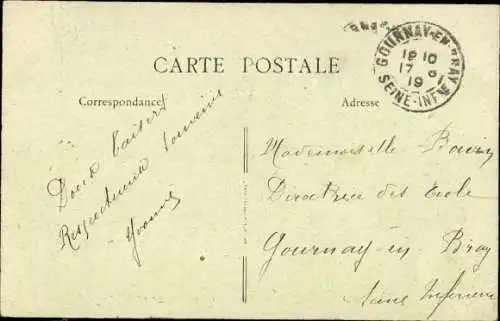 CARTE POSTALE
Correspondance
Adresse
GOURNAY-EN-BRAY
18 10
17
19
SEINE-INFRE
Doux baisers
Respectueux souvenir
Yvonne
Mademoiselle
Directrice des Ecole
Gournay-en-Bray
Seine Inférieure